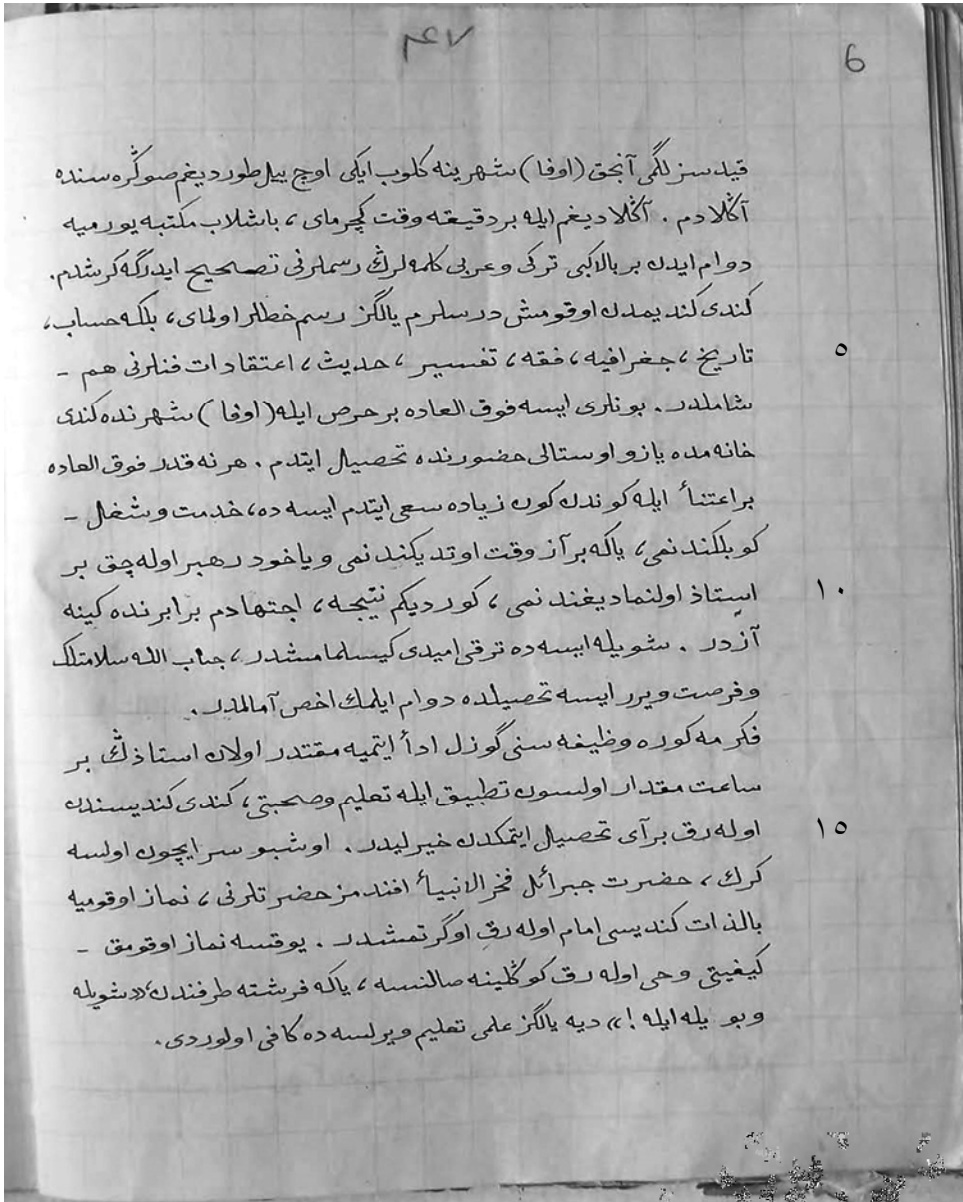 ۴۷
6
قیدسزلگمی آنجق (اوفا) شهرینه کلوب ایکی اوچ ییل طوردیغم صوڭره سنده
آڭلادم . آڭلادیغم ایله بر دقیقه وقت کچرمای ، باشلاب مکتبه یورمیه
دوام ایدن بر بالا کبی ترکی و عربی کلمه لرڭ رسملرنی تصحیح ایدرگه کرشدم.
کندی کندیمدن اوقومش درسلرم یالگز رسم خطلر اولمای ، بلکه حساب ،
تاریخ ، جغرافیه ، فقه ، تفسیر ، حدیث ، اعتقادات فنلرنی هم - ٥
شاملدر . بونلری ایسه فوق العاده بر حرص ایله (اوفا) شهرنده کندی
خانه مده یازو اوستالی حضورنده تحصیل ایتدم . هر نه قدر فوق العاده
بر اعتنأ ایله کوندن کون زیاده سعی ایتدم ایسه ده ، خدمت و شغل -
کوبلکندنمی ، یاکه بر آز وقت اوتدیکندنمی و یاخود رهبر اوله چق بر
استاذ اولنمادیغندنمی ، کوردیکم نتیجه ، اجتهادم برابرنده کینه ١٠
آزدر . شویله ایسه ده ترقی امیدی کیسلمامشدر ، جناب الله سلامتلک
و فرصت ویرر ایسه تحصیلده دوام ایلمك اخص آمالمدر .
فکرمه کوره وظیفه سنی گوزل ادأ ایتمیه مقتدر اولان استاذڭ بر
ساعت مقدار اولسون تطبیق ایله تعلیم وصحبتی ، کندی کندیسندن
اوله رق بر آی تحصیل ایتمکدن خیرلیدر . اوشبو سر ایچون اولسه ١٥
کرك ، حضرت جبرائل فخر الانبیأ افندمز حضرتلرنی ، نماز اوقومیه
بالذات کندیسی امام اوله رق اوگرتمشدر . یوقسه نماز اوقومق -
کیفیتی وحی اوله رق کوڭلینه صالنسه ، یاکه فرشته طرفندن ، «شویله
و بویله ایله !» دیه یالگز علمی تعلیم ویرلسه ده کافی اولوردی .